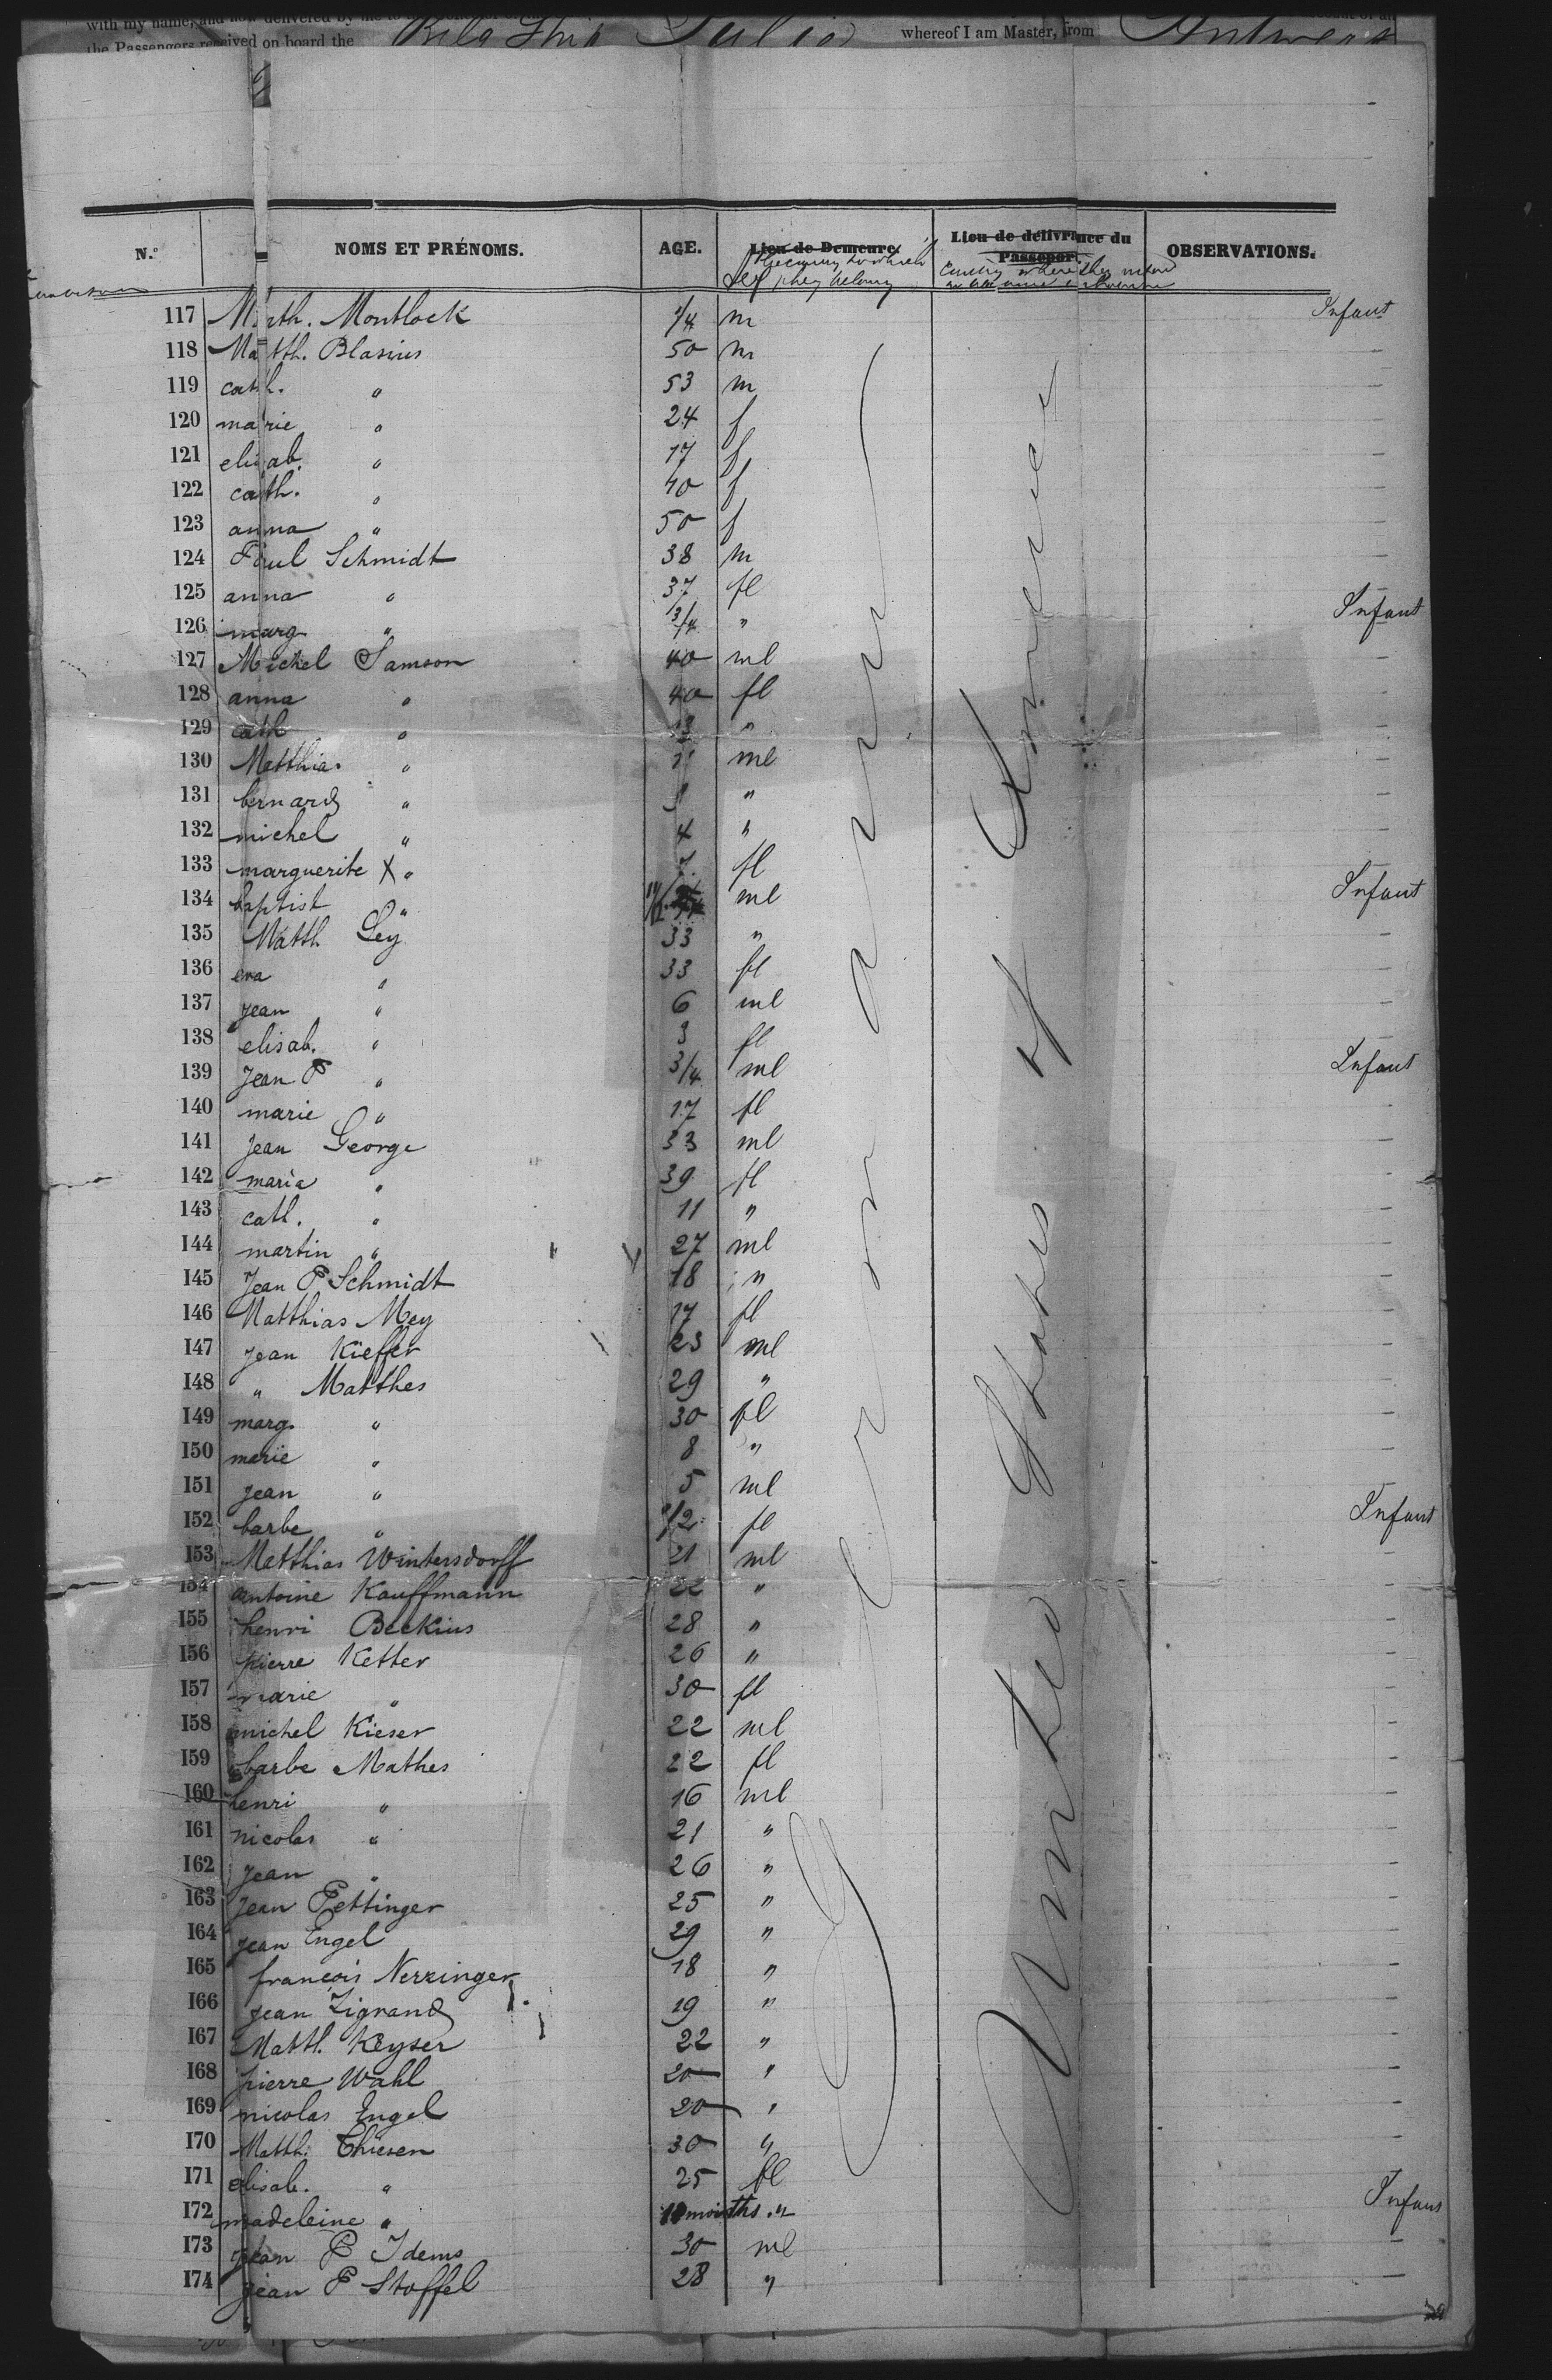 with my name, and now delivered by me to
the Passengers received on board the Ship Julia whereof I am Master, from Antwerp
N.° NOMS ET PRÉNOMS. AGE. Lieu de Demeure. Lieu de délivrance du Passeport. OBSERVATIONS.
Sex the country to which they belong
Country where they intend
117 Math. Montlock 1/4 m Infant
118 Matth. Blasius 50 m —
119 cath. " 53 m —
120 marie " 24 f —
121 elisab. " 17 f —
122 cath. " 40 f —
123 anna " 50 f —
124 Paul Schmidt 38 m —
125 anna " 37 fl —
126 marg " 3/4 " Infant
127 Michel Samson 40 ml —
128 anna " 40 fl —
129 cath " 13 " —
130 Matthias " 11 ml —
131 bernard " "
132 michel " 4 " —
133 marguerite X " 7 fl —
134 baptist " ml Infant
135 Matth Ley 33 " —
136 eva " 33 fl —
137 jean " 6 ml —
138 elisab. " 3 fl —
139 Jean P " 3/4 ml Infant
140 marie " 17 fl —
141 jean George 33 ml —
142 maria " 39 fl —
143 cath. " 11 " —
144 martin " 27 ml —
145 Jean P Schmidt 18 " —
146 Matthias Mey 17 fl —
147 jean Kieffer 23 ml —
148 " Matthes 29 " —
149 marg. " 30 fl —
150 marie " 8 " —
151 jean " 5 ml —
152 barbe " 1/2 fl Infant
153 Matthias Wintersdorff 21 ml —
154 antoine Kauffmann 22 " —
155 henri Beckius 28 " —
156 pierre Ketter 26 " —
157 marie " 30 fl —
158 michel Kieser 22 ml —
159 barbe Mathes 22 fl —
160 henri " 16 ml —
161 nicolas " 21 " —
162 jean " 26 " —
163 Jean Pettinger 25 " —
164 jean Engel 29 " —
165 francois Nerzinger 18 " —
166 jean Zigrand 19 " —
167 Matth. Keyser 22 " —
168 pierre Wahl 20 " —
169 nicolas Engel 20 " —
170 Matth. Thiesen 30 " —
171 elisab. " 25 fl —
172 madeleine " 10 months " Infant
173 jean P Idems 30 ml —
174 jean P Stoffel 28 " —
Germany
United States of America